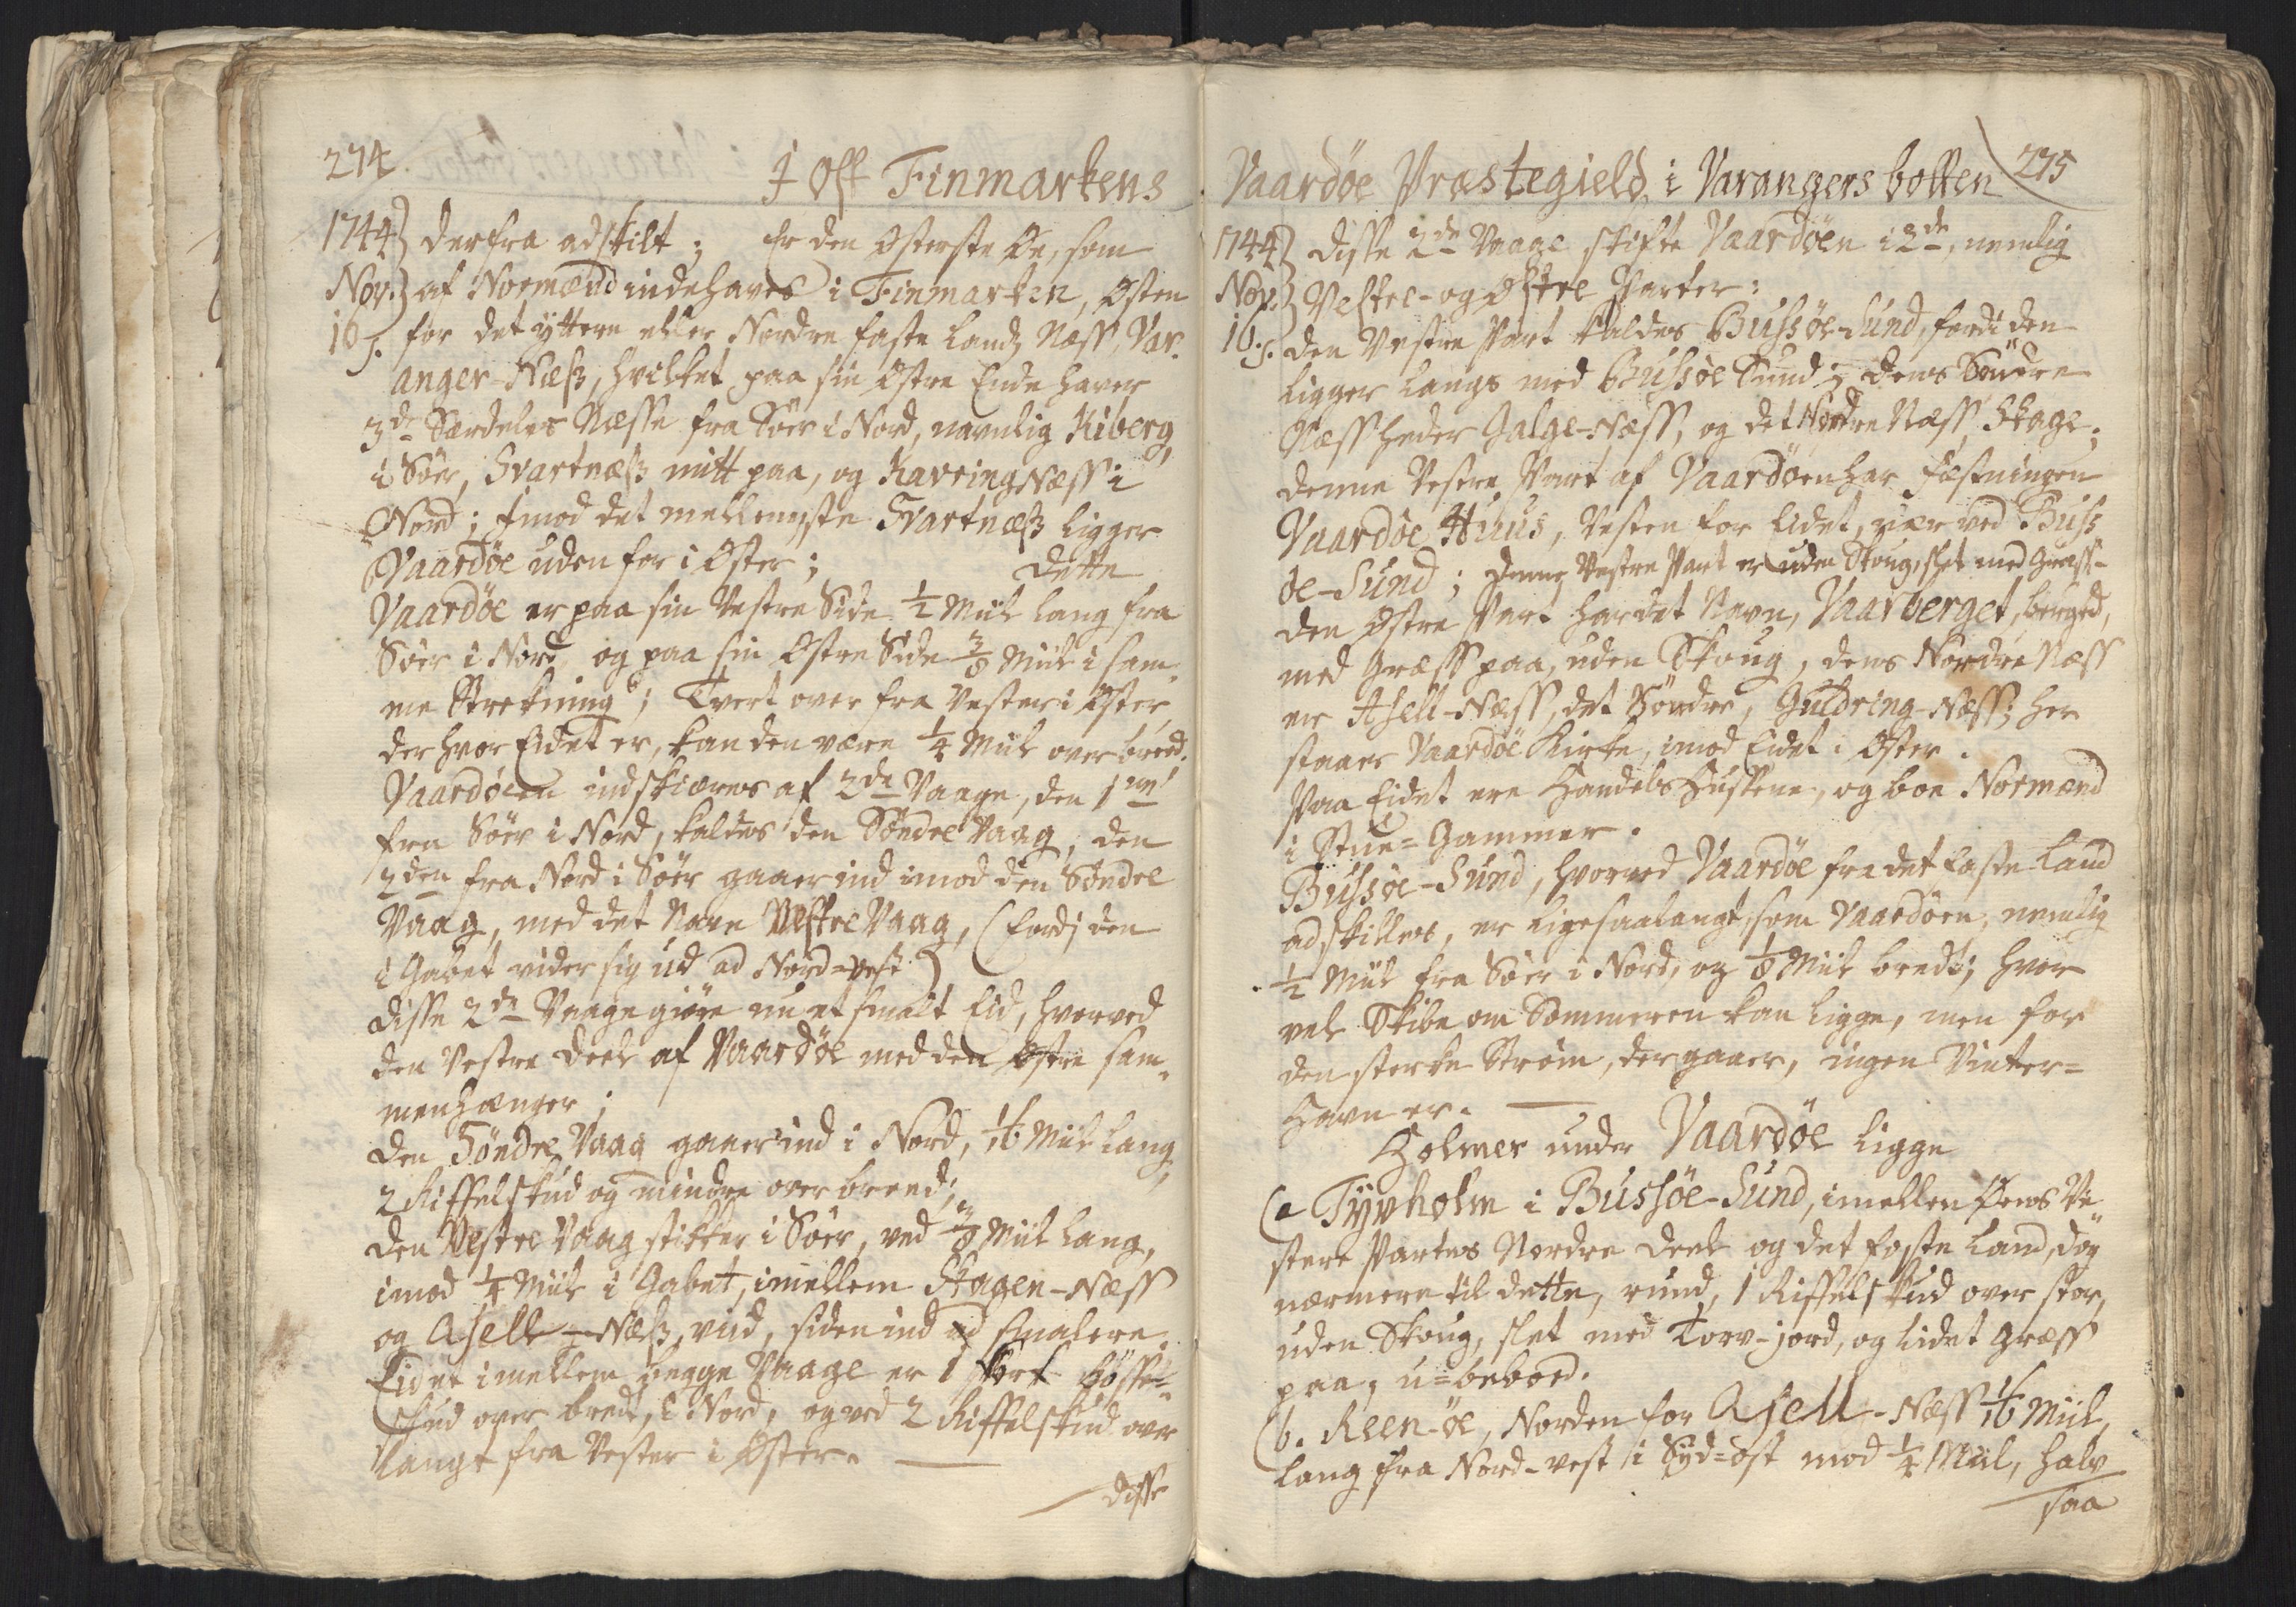 274.
I Øst Finmarkens
1744} derfra adskilt; Er den Østerste Øe, som
Nov.} af Normænd indehaves i Finmarken, Østen
16s. for det ÿttere eller Nordre faste Lands Næss, Var-
anger-Næss, hvilket paa sin Østre Ende haver
3de Særdeles Næsse fra Sør i Nord, navnlig Kiberg,
i Sør, Svartnæss mitt paa, og KavringNæss i
Nord; Imod det mellemste Svartnæss ligger
Vaardøe uden for i Øster; Dette
Vaardøe er paa sin Vestre Side 1/2 Miil lang fra
Sør i Nord, og paa sin Østre Side 3/8 Miil i sam-
me Strekning; Tvert over fra Vester i Øster,
der hvor Eidet er, kan den være 1/4 Miil over breed.
Vaardøen indskiæres af 2de Vaage, den 1ne
fra Sør i Nord, kaldes den Søndre Vaag, den
2den fra Nord i Sør gaaer ind imod den Søndre
Vaag, med det Navn Vestre Vaag, (fordj den
i Gabet vider sig ud ad Nord-vest)
disse 2de Vaage giøre nu et smalt Eid, hvorved
den Vestre Deel af Vaardøe med den Østre sam-
menhænger;
den Søndre Vaag gaaer ind i Nord, 1/16 Miil lang,
2 Riffelskud og mindre over breed;
den Vestre Vaag stikker i Sør, ved 3/8 Miil lang,
imod 1/4 Miil i Gabet, imellem Skagen-Næss
og Asell-Næss, viid, siden ind ad smalere.
Eidet imellem begge Vaage er 1 stort Bøsse-
skud over bredt, i Nord, og ved 2 Riffelskud over
langt fra Vester i Øster.
disse
Vaardøe Præstegield i Varangersbotten 275
1744} disse 2de Vaage skifte Vaardøen i 2de, nemlig
Nov.} Vestre- og Østre Parter:
16.s. den Vestre Part kaldes Bussøe-Sund, fordi den
ligger langs med Bussøe Sund; dens Søndre
Næss heder Galge-Næss, og det Nordre Næss, Skage;
denne Vestre Part af Vaardøen har Fæstningen
Vaardøe Huus, Vesten for Eidet, nær ved Buss
øe-Sund; denne Vestre Part er uden Skoug, slet med Græss-
den Østre Part har det Navn, Vaarberget, berged,
med Græss paa, uden Skoug, dens Nordre Næss
er Asell-Næss, det Søndre, Guldring-Næss; her
staaer Vaardøe Kirke, imod Eidet i Øster.
Paa Eidet ere Handels Hussene, og boe Normænd
i Stue-Gammer.
Bussøe-Sund, hvorved Vaardøe fra det faste Land
adskilles, er ligesaalangt, som Vaardøen, nemlig
1/2 Miil fra Sør i Nord, og 1/8 Miil bredt; hvor
vel Skibe om Sommeren kan ligge, men for
den sterke Strøm, der gaaer, ingen Vinter-
Havn er.
Holmer under Vaardøe ligge
(a Tyvholm i Bussøe-Sund, imellem Øens Ve-
stere Partes Nordre Deel og det faste Land, dog
nærmere til dette, rund, 1 Riffelskud over stor,
uden Skoug, slet med Torv-jord, og lidet Græss
paa, u-beboed.
(b. Reen-øe, Norden for Asell-Næss 1/16 Miil,
lang fra Nord-vest i Syd-ost mod 1/4 Miil, halv
saa